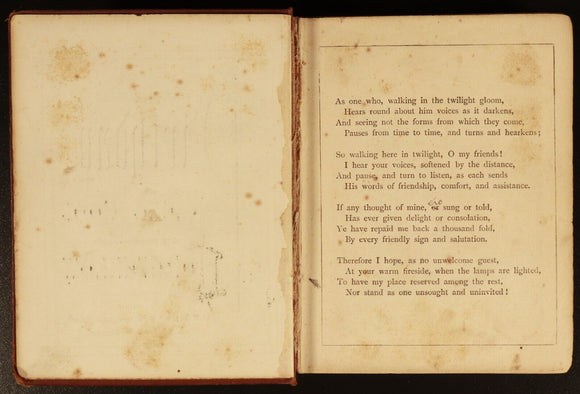 As one who, walking in the twilight gloom,
Hears round about him voices as it darkens,
And seeing not the forms from which they come,
Pauses from time to time, and turns and hearkens;
So walking here in twilight, O my friends!
I hear your voices, softened by the distance,
And pause, and turn to listen, as each sends
His words of friendship, comfort, and assistance.
If any thought of mine, or sung or told,
Has ever given delight or consolation,
Ye have repaid me back a thousand fold,
By every friendly sign and salutation.
Therefore I hope, as no unwelcome guest,
At your warm fireside, when the lamps are lighted,
To have my place reserved among the rest,
Nor stand as one unsought and uninvited!